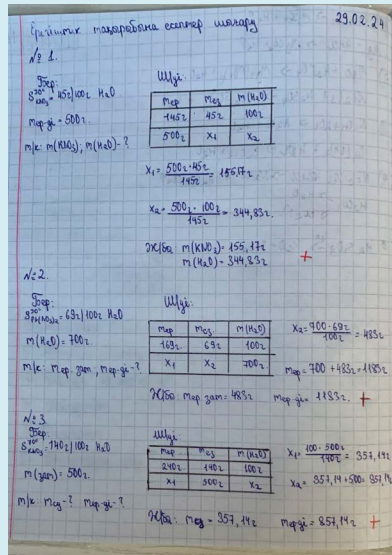 Ерігіштік тақырабына есептер шығару
29.02.24
№ 1.
Бер:
S³⁰° KNO₃ = 45г/100г H₂O
mер-ді = 500г.
т/к: m(KNO₃); m(H₂O)-?
Ш/уі:
mер mсз m(H₂O)
145г 45г 100г
500г x₁ x₂
x₁ = 500г·45г / 145г = 155,17г
x₂ = 500г·100г / 145г = 344,83г
Ж/бы: m(KNO₃) = 155,17г
m(H₂O) = 344,83г
+
№2.
Бер:
= 69г/100г H₂O
m(H₂O) = 700г.
т/к: mер. зат, mер-ді-?
Ш/уі:
mер mсз m(H₂O)
169г 69г 100г
x₁ x₂ 700г
x₂ = 700·69г / 100г = 483г
mер = 700 + 483г = 1183г
Ж/бы: mер зат = 483г mер-ді = 1183г. +
№ 3.
Бер:
S⁷⁰° KNO₃ = 140г/100г H₂O
m(зат) = 500г.
т/к: mсз-? mер-ді-?
Ш/уі
mер mсз m(H₂O)
240г 140г 100г
x₁ 500г x₂
x₁ = 100·500г / 140г = 357,14
x₂ = 357,14 + 500 = 857,14
Ж/бы: mсз = 357,14г mер-ді = 857,14г +